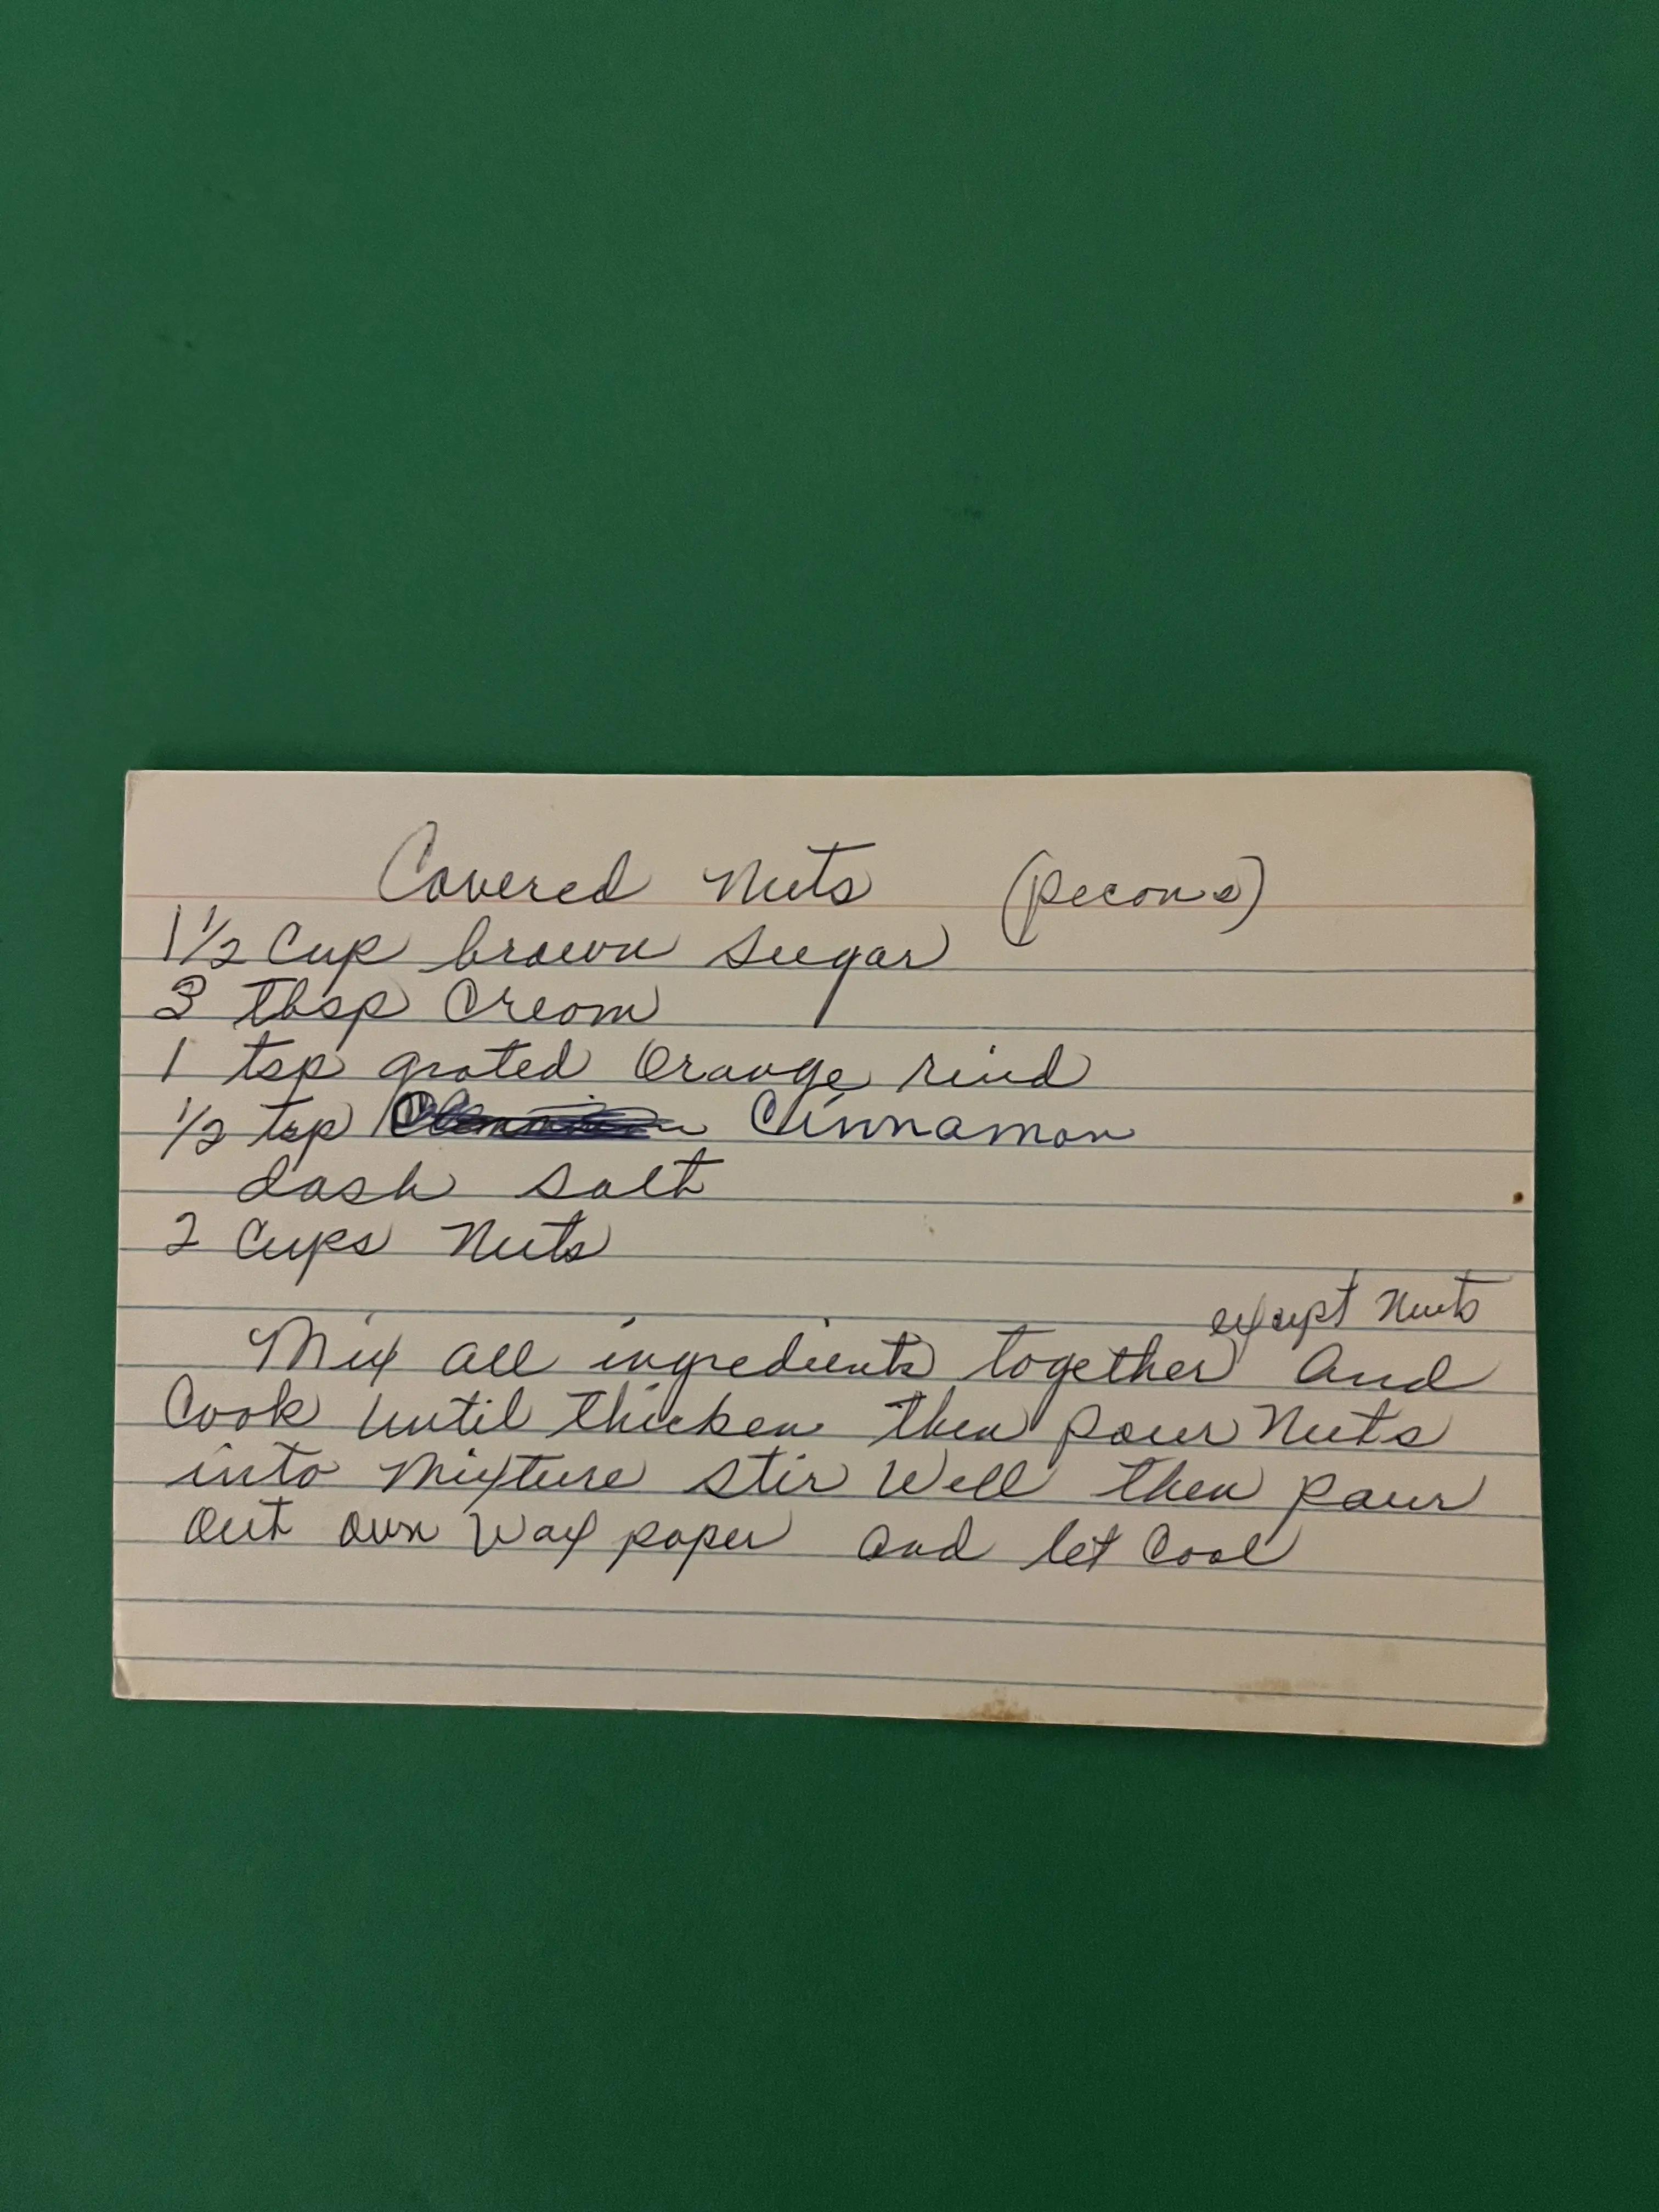 Covered Nuts (pecans)
1 1/2 Cup brown sugar
3 tbsp Cream
1 tsp grated Orange rind
1/2 tsp Cinnamon
dash salt
2 Cups Nuts
except Nuts
Mix all ingredients together and
Cook until thicken then pour Nuts
into Mixture stir Well then pour
out own Wax paper and let Cool